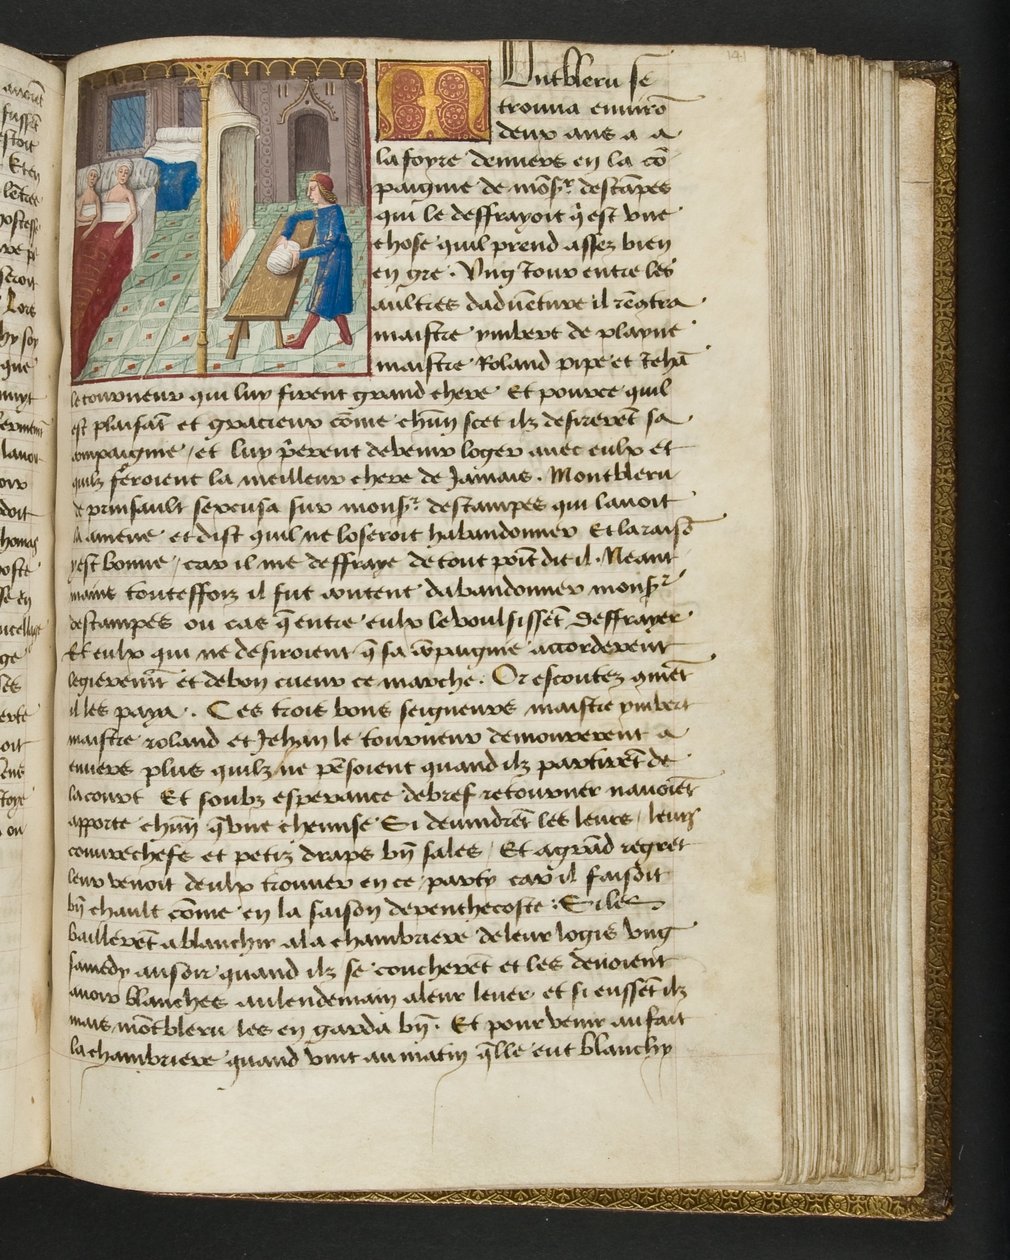 Untbleru se
trouua enuirō
deux ans a a
la foyre denuers en la cō
paignie de mōsr destāpes
qui le deffrayoit q̄ est vne
chose quil prend assez bien
en gre . Vng iour entre les
aultres daduēture il rēcōtra
maistre ymbert de playne
maistre Roland pipe et Jehā
le tourneur qui luy firent grand chere Et pource quil
est plaisāt et gracieux cōme chūn scet ilz desirerēt sa
compaignie / et luy p̄erent de venir loger auec eulx et
quilz feroient la meilleur chere de Jamais . Montbleru
de prinsault sexcusa sur monsr destampes qui lauoit
la amene et dist quil ne loseroit habandonner Et la raisō
yest bonne / car il me deffraye de tout poīt dit il . Neant
mains touteffoiz il fut content dabandonner monsr
destampes ou cas q̄ entre eulx le voulsissēt deffrayer
Et eulx qui ne desiroient q̄ sa cōpaignie accorderent
legieremēt et de bon cueur ce marche . Or escoutez cōmēt
il les paya . Ces trois bons seigneurs maistre ymbert
maistre roland et Jehan le tourneur demourerent a
enuers plus quilz ne pēsoient quand ilz partirēt de
la court Et soubz esperance de bref retourner nauoiēt
apporte chūn q̄ vne chemise Si deuindrēt les leurs / leurs
couurechefs et petiz draps bn̄ sales / Et a grād regret
leur venoit deulx trouuer en ce party car il faisoit
bn̄ chault cōme en la saison de penthecoste . Si les
baillerēt a blanchir a la chambriere de leur logis vng
samedy au soir quand ilz se coucherēt et les deuoient
auoir blanches au lendemain a leur leuer et si eussēt ilz
mais mōtbleru les en garda bn̄ . Et pour venir au fait
la chambriere quand vint au matin q̄lle eut blanchy